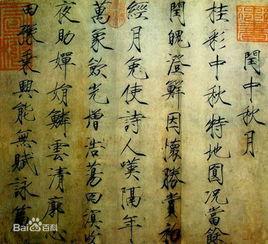 閏中秋月
桂彩中秋特地圓況當餘
閏魄澄鮮因懷勝賞初
經月免使詩人嘆隔年
萬象斂光增浩蕩四溟收
夜助嬋娟鱗雲清廓心
田豫乘興能無賦詠篇
Bai百科